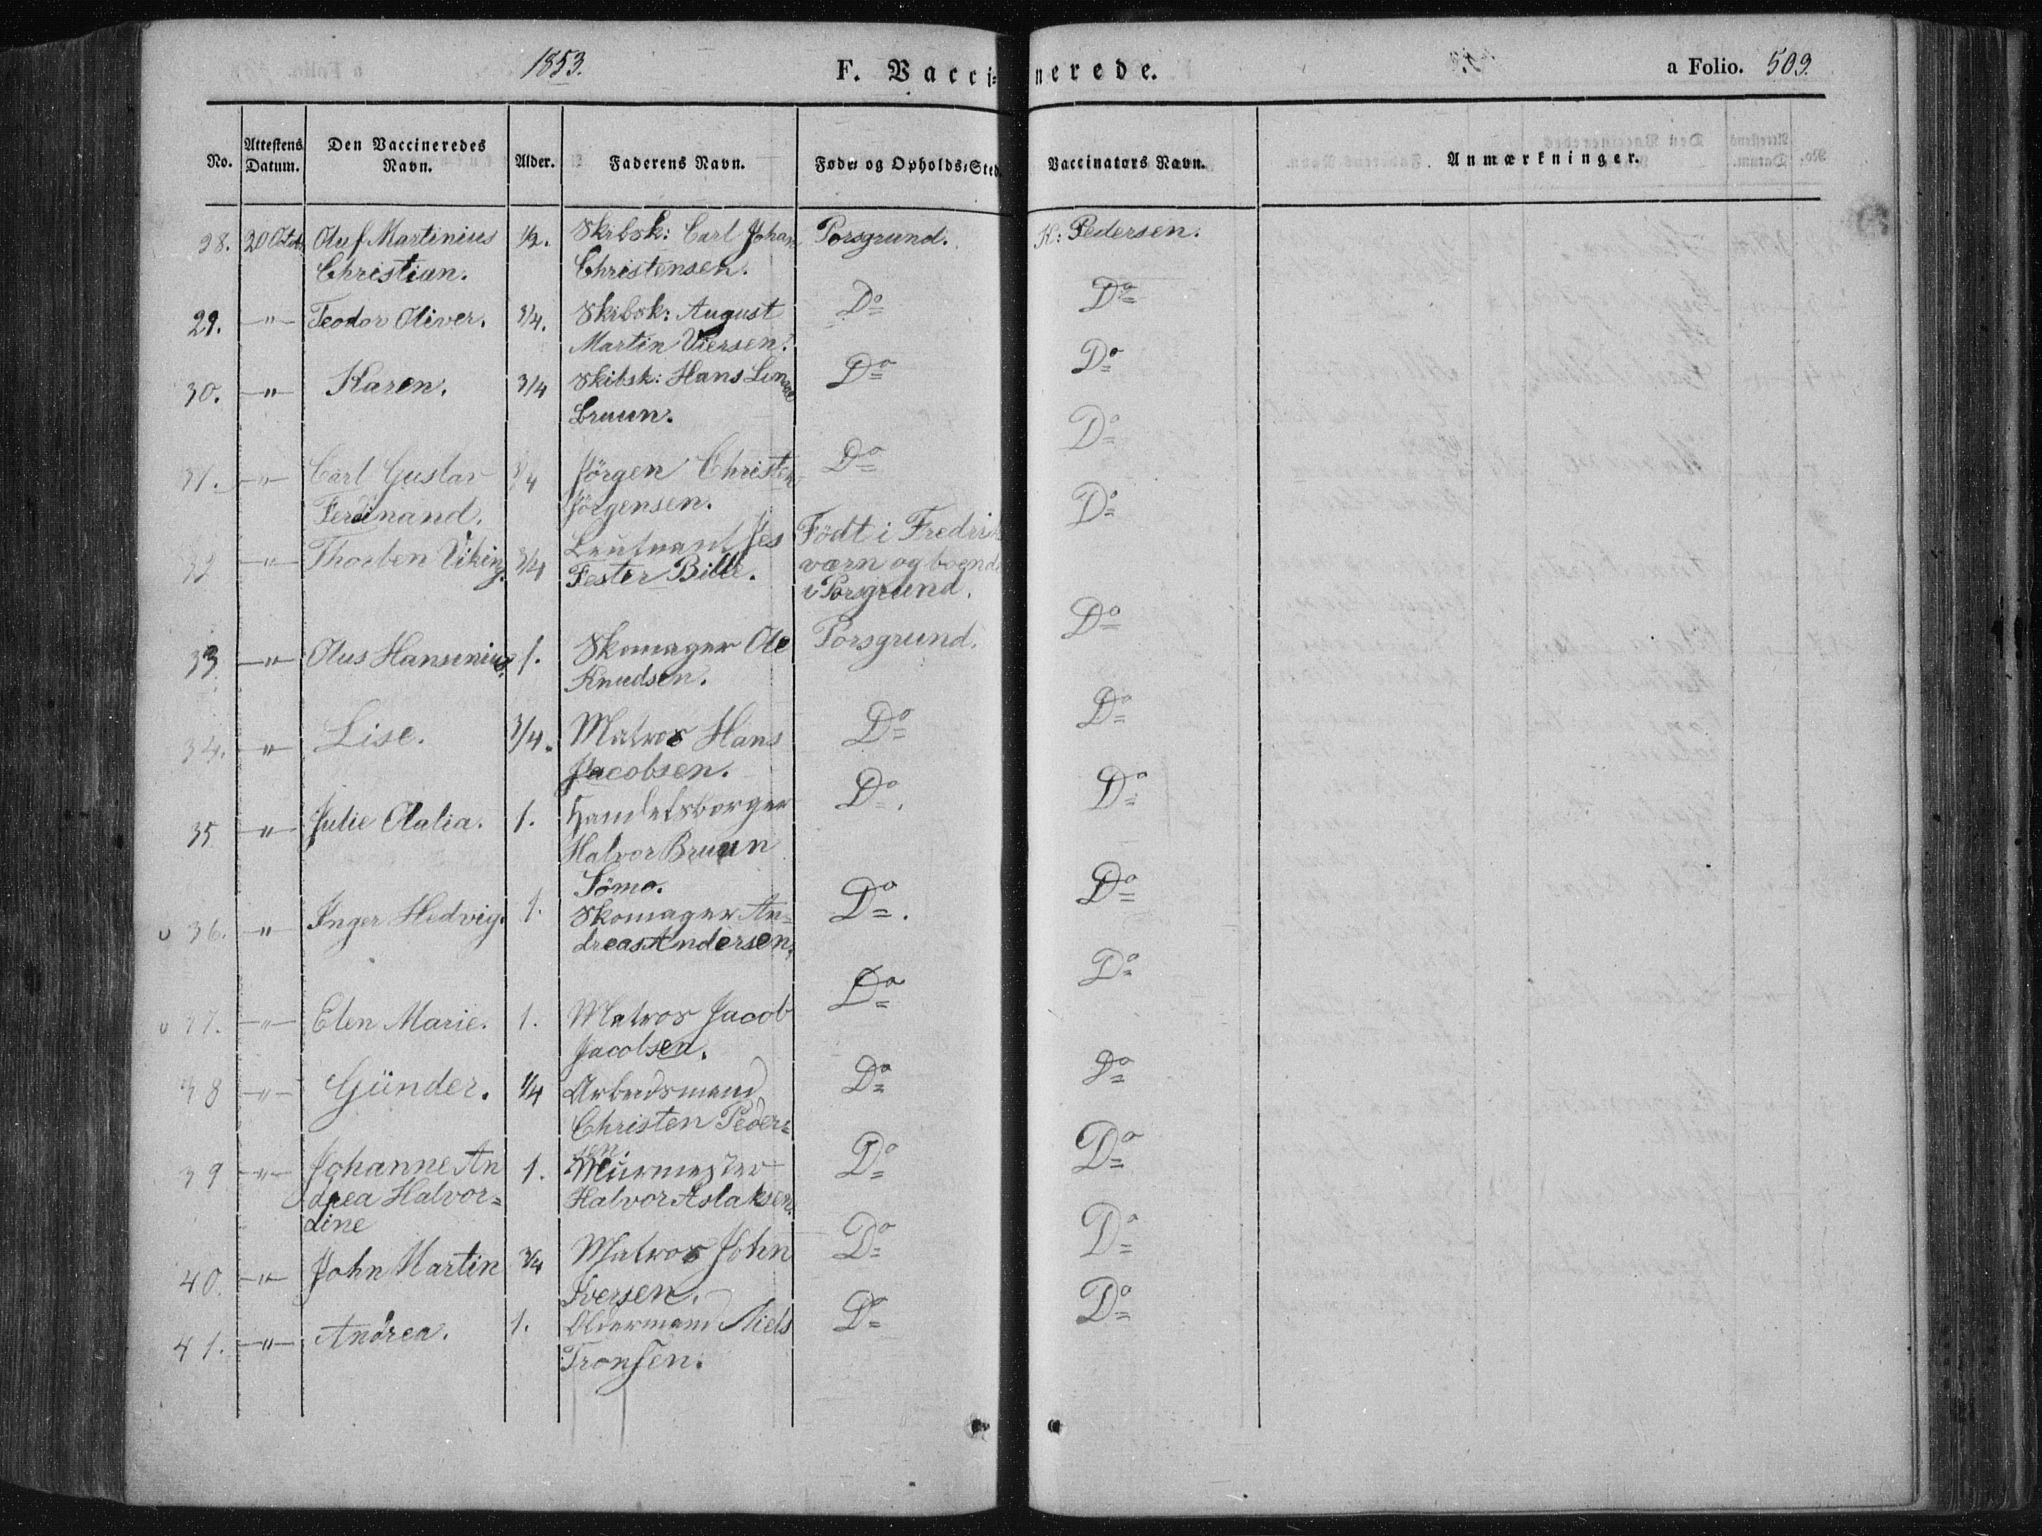 1853.
F. Vacci=
nerede.
a Folio. 509.
No.
Attestens Datum.
Den Vaccineredes Navn.
Alder.
Faderens Navn.
Føde- og Opholds-Sted
Vaccinators Navn.
Anmærkninger.
28. 20 Octd. Oluf Martinius 1/2. Skibsk: Carl Johan Porsgrund. H: Pedersen.
Christian. Christensen.
29. -"- Teodor Oliver. 3/4. Skibsk: August Do Do
Martin Iversen.
30. -"- Karen. 3/4 Skibsk: Hans Do Do
Bruun.
31. -"- Carl Gustav 3/4 Jörgen Christen Do Do
Ferdinand. Jörgensen.
32 -"- Thorben Viking. 3/4 Leutnant Jes Födt i Fredriks Do
Fester Bille. værn og boende
i Porsgrund.
33 -"- Olus Hansinius. 1. Skomager Ole Porsgrund. Do
Knudsen.
34. -"- Lise. 3/4. Matros Hans Do Do
Jacobsen.
35 -"- Julie Olalia. 1. Handelsborger Do. Do
Halvor Bruun
Tömo.
36. -"- Inger Hedvig. 1. Skomager An= Do. Do
dreas Andersen.
37. -"- Elen Marie. 1. Matros Jacob Do Do
Jacobsen.
38 -"- Günder. 1/4 Arbeidsmand Do Do
Christen Peder=
sen.
39 -"- Johanne An 1. Muurmester Do Do
drea Halvor= Halvor Aslaksen.
dine
40. -"- John Martin 3/4 Matros John Do Do
Iversen.
41. -"- Andrea. 1. Oldermand Niels Do Do
Tronsen.